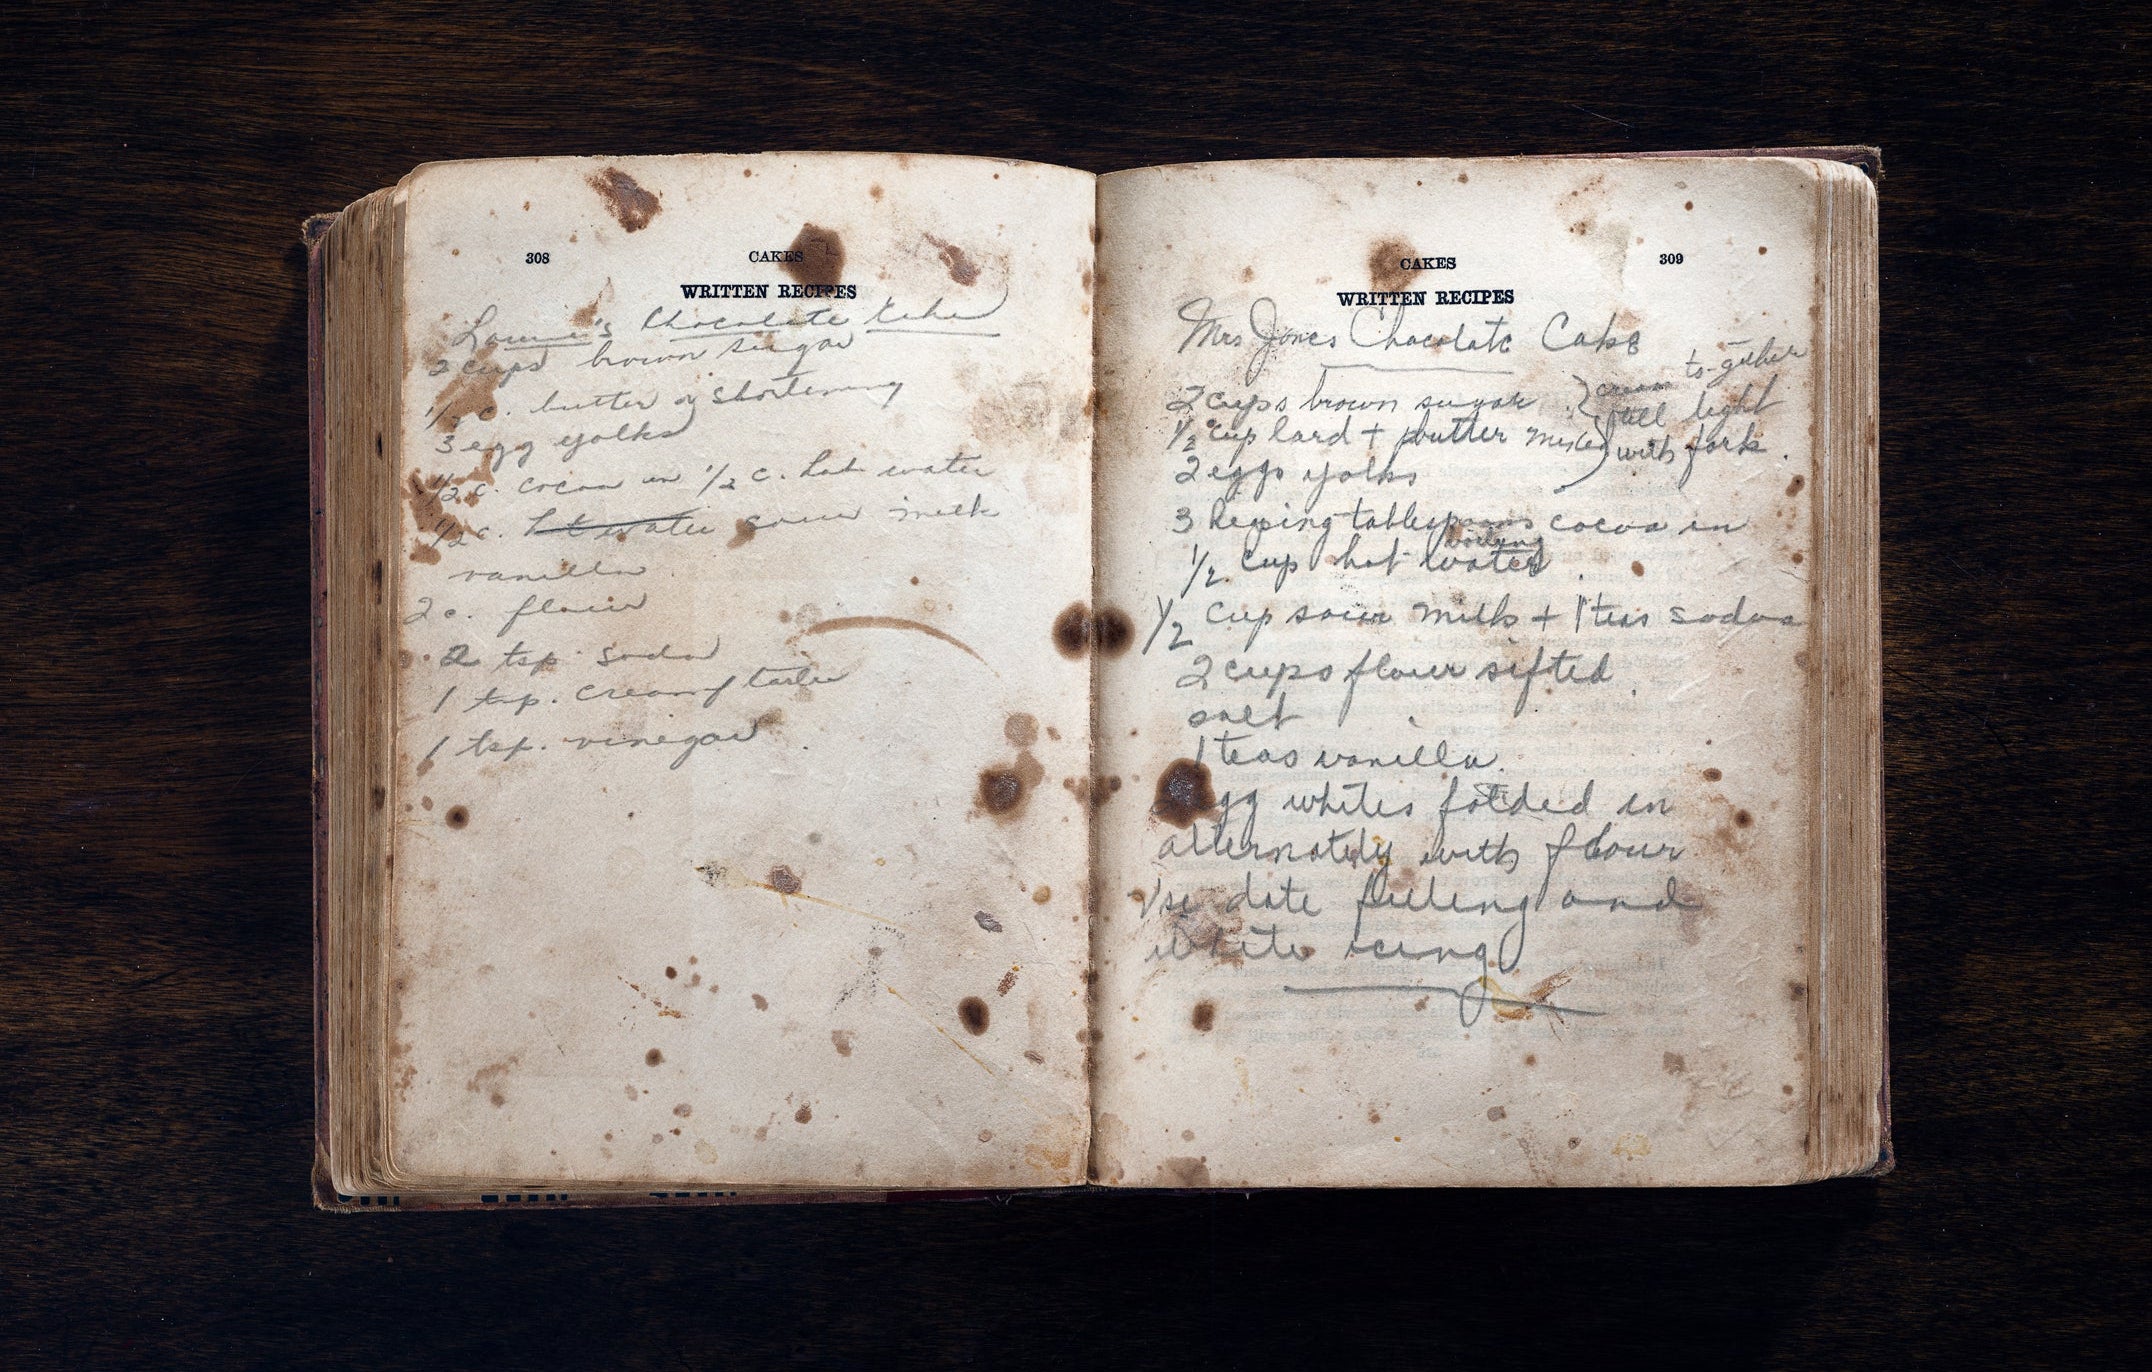 308
CAKES
WRITTEN RECIPES
Chocolate Cake
2 cups brown sugar
1/2 c. butter or shortening
3 egg yolks
1/2 c. cocoa in 1/2 c. hot water
1/2 c. hot water sour milk
vanilla
2 c. flour
2 tsp. soda
1 tsp. cream of tarter
1 tsp. vinegar
CAKES
309
WRITTEN RECIPES
Mrs Jones Chocolate Cake
2 cups brown sugar } cream to-gether
1/2 cup lard + butter mixed } till light with fork.
2 eggs yolks
3 heaping tablespoons cocoa in
boiling
1/2 cup hot water
1/2 cup sour milk + 1 teas soda
2 cups flour sifted
salt
1 teas vanilla.
egg whites folded in
alternately with flour
Use date filling and
white icing